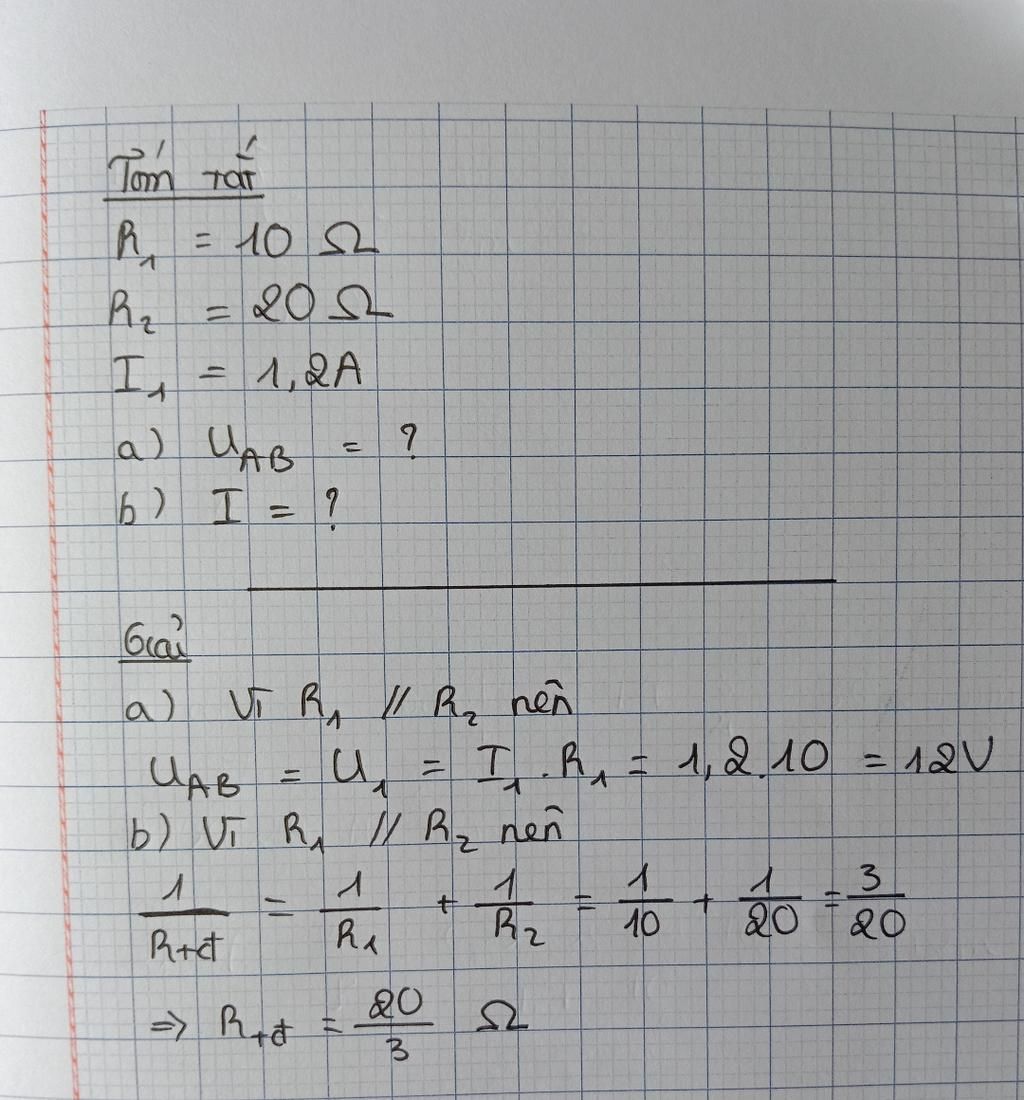 Tóm tắt
R₁ = 10 Ω
R₂ = 20 Ω
I₁ = 1,2A
a) U_AB = ?
b) I = ?
Giải
a) Vì R₁ // R₂ nên
U_AB = U₁ = I₁ . R₁ = 1,2.10 = 12V
b) Vì R₁ // R₂ nên
1/R_tđ = 1/R₁ + 1/R₂ = 1/10 + 1/20 = 3/20
=> R_tđ = 20/3 Ω